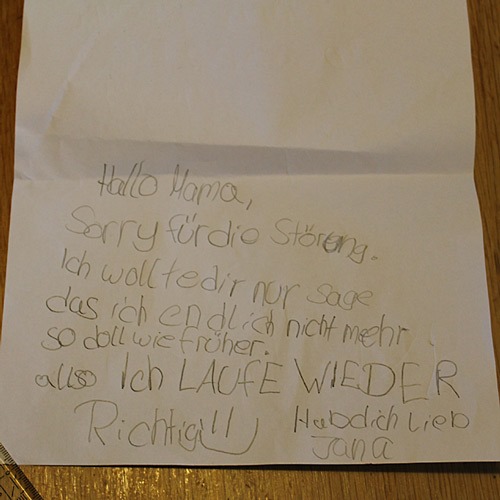 Hallo Mama,
Sorry für die Störung.
Ich wollte dir nur sage
das ich endlich nicht mehr
so doll wie früher.
allso Ich LAUFE WIEDER
Richtig!!! Hab dich Lieb
Jana